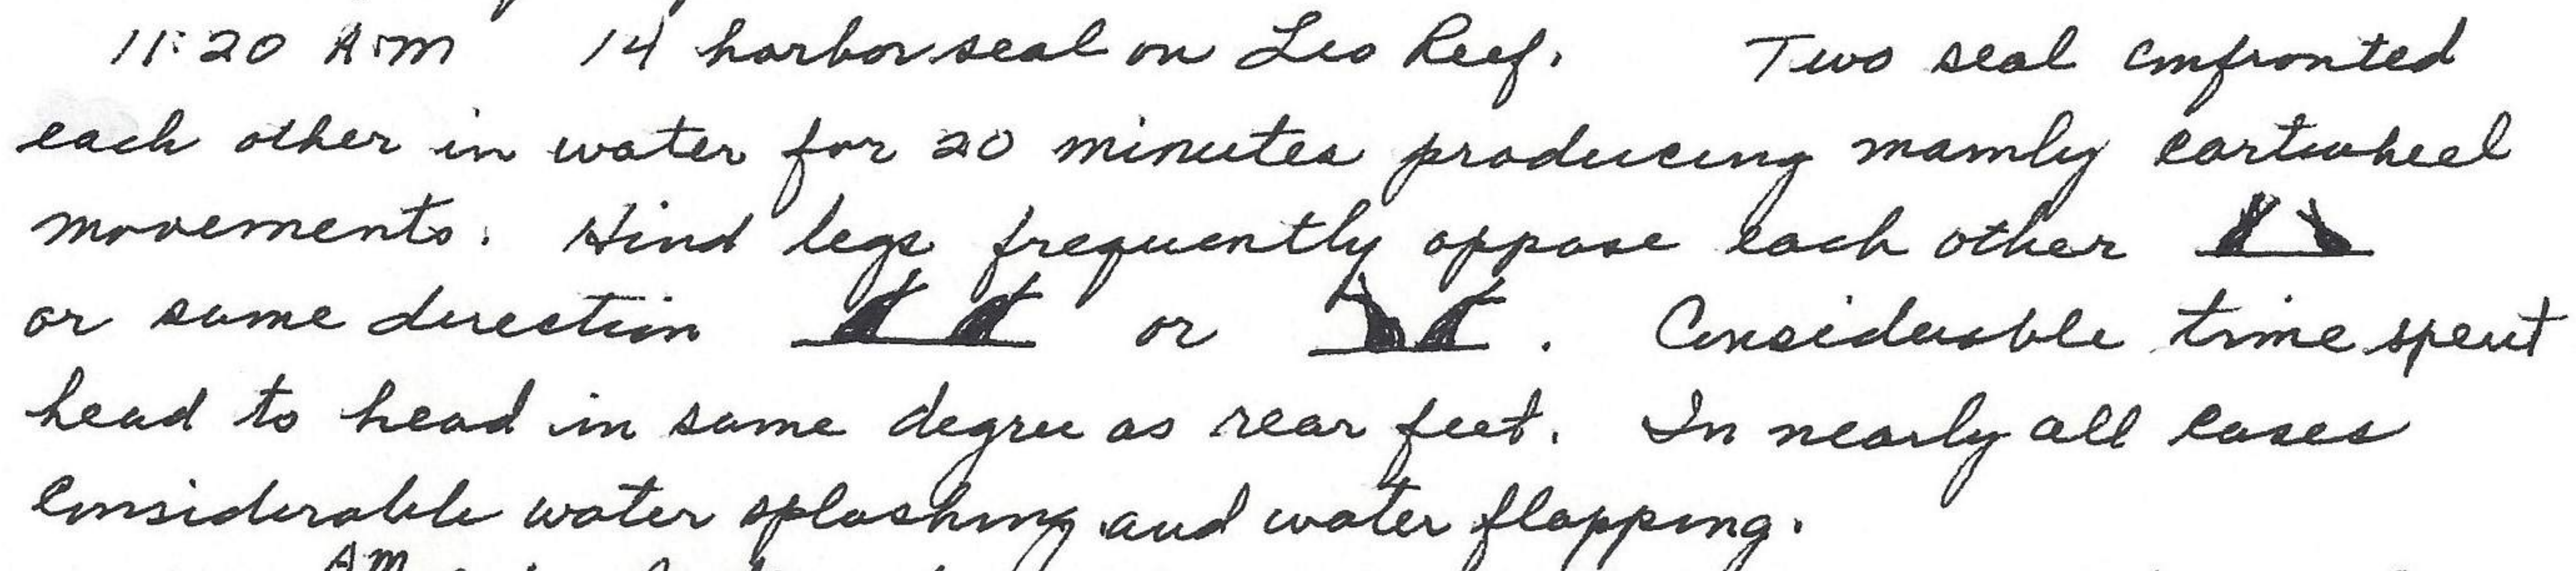 11:20 A.M 14 harbor seal on Leo Reef. Two seal confronted
each other in water for 20 minutes producing mainly cartwheel
movements. Hind legs frequently oppose each other
or same direction or . Considerable time spent
head to head in same degree as rear feet. In nearly all cases
considerable water splashing and water flapping.
AM